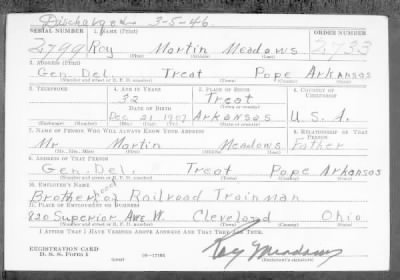 Discharged 3-5-46
SERIAL NUMBER 1. NAME (Print) ORDER NUMBER
2799 Roy Martin Meadows 2733
(First) (Middle) (Last)
2. ADDRESS (Print)
Gen. Del. Treat Pope Arkansas
(Number and street or R. F. D. number) (Town) (County) (State)
3. TELEPHONE 4. AGE IN YEARS 5. PLACE OF BIRTH 6. COUNTRY OF CITIZENSHIP
32 Treat
DATE OF BIRTH (Town or county)
Dec 21 1907 Arkansas U.S.A.
(Exchange) (Number) (Mo.) (Day) (Yr.) (State or country)
7. NAME OF PERSON WHO WILL ALWAYS KNOW YOUR ADDRESS 8. RELATIONSHIP OF THAT PERSON
Mr. Martin Meadows Father
(Mr., Mrs., Miss) (First) (Middle) (Last)
9. ADDRESS OF THAT PERSON
Gen. Del. Treat Pope Arkansas
(Number and street or R. F. D. number) (Town) (County) (State)
10. EMPLOYER'S NAME
Brotherhood of Railroad Trainman
11. PLACE OF EMPLOYMENT OR BUSINESS
820 Superior Ave W. Cleveland Ohio
(Number and street or R. F. D. number) (Town) (County) (State)
I AFFIRM THAT I HAVE VERIFIED ABOVE ANSWERS AND THAT THEY ARE TRUE.
REGISTRATION CARD
D. S. S. FORM 1
Roy Meadows
(Registrant's signature)